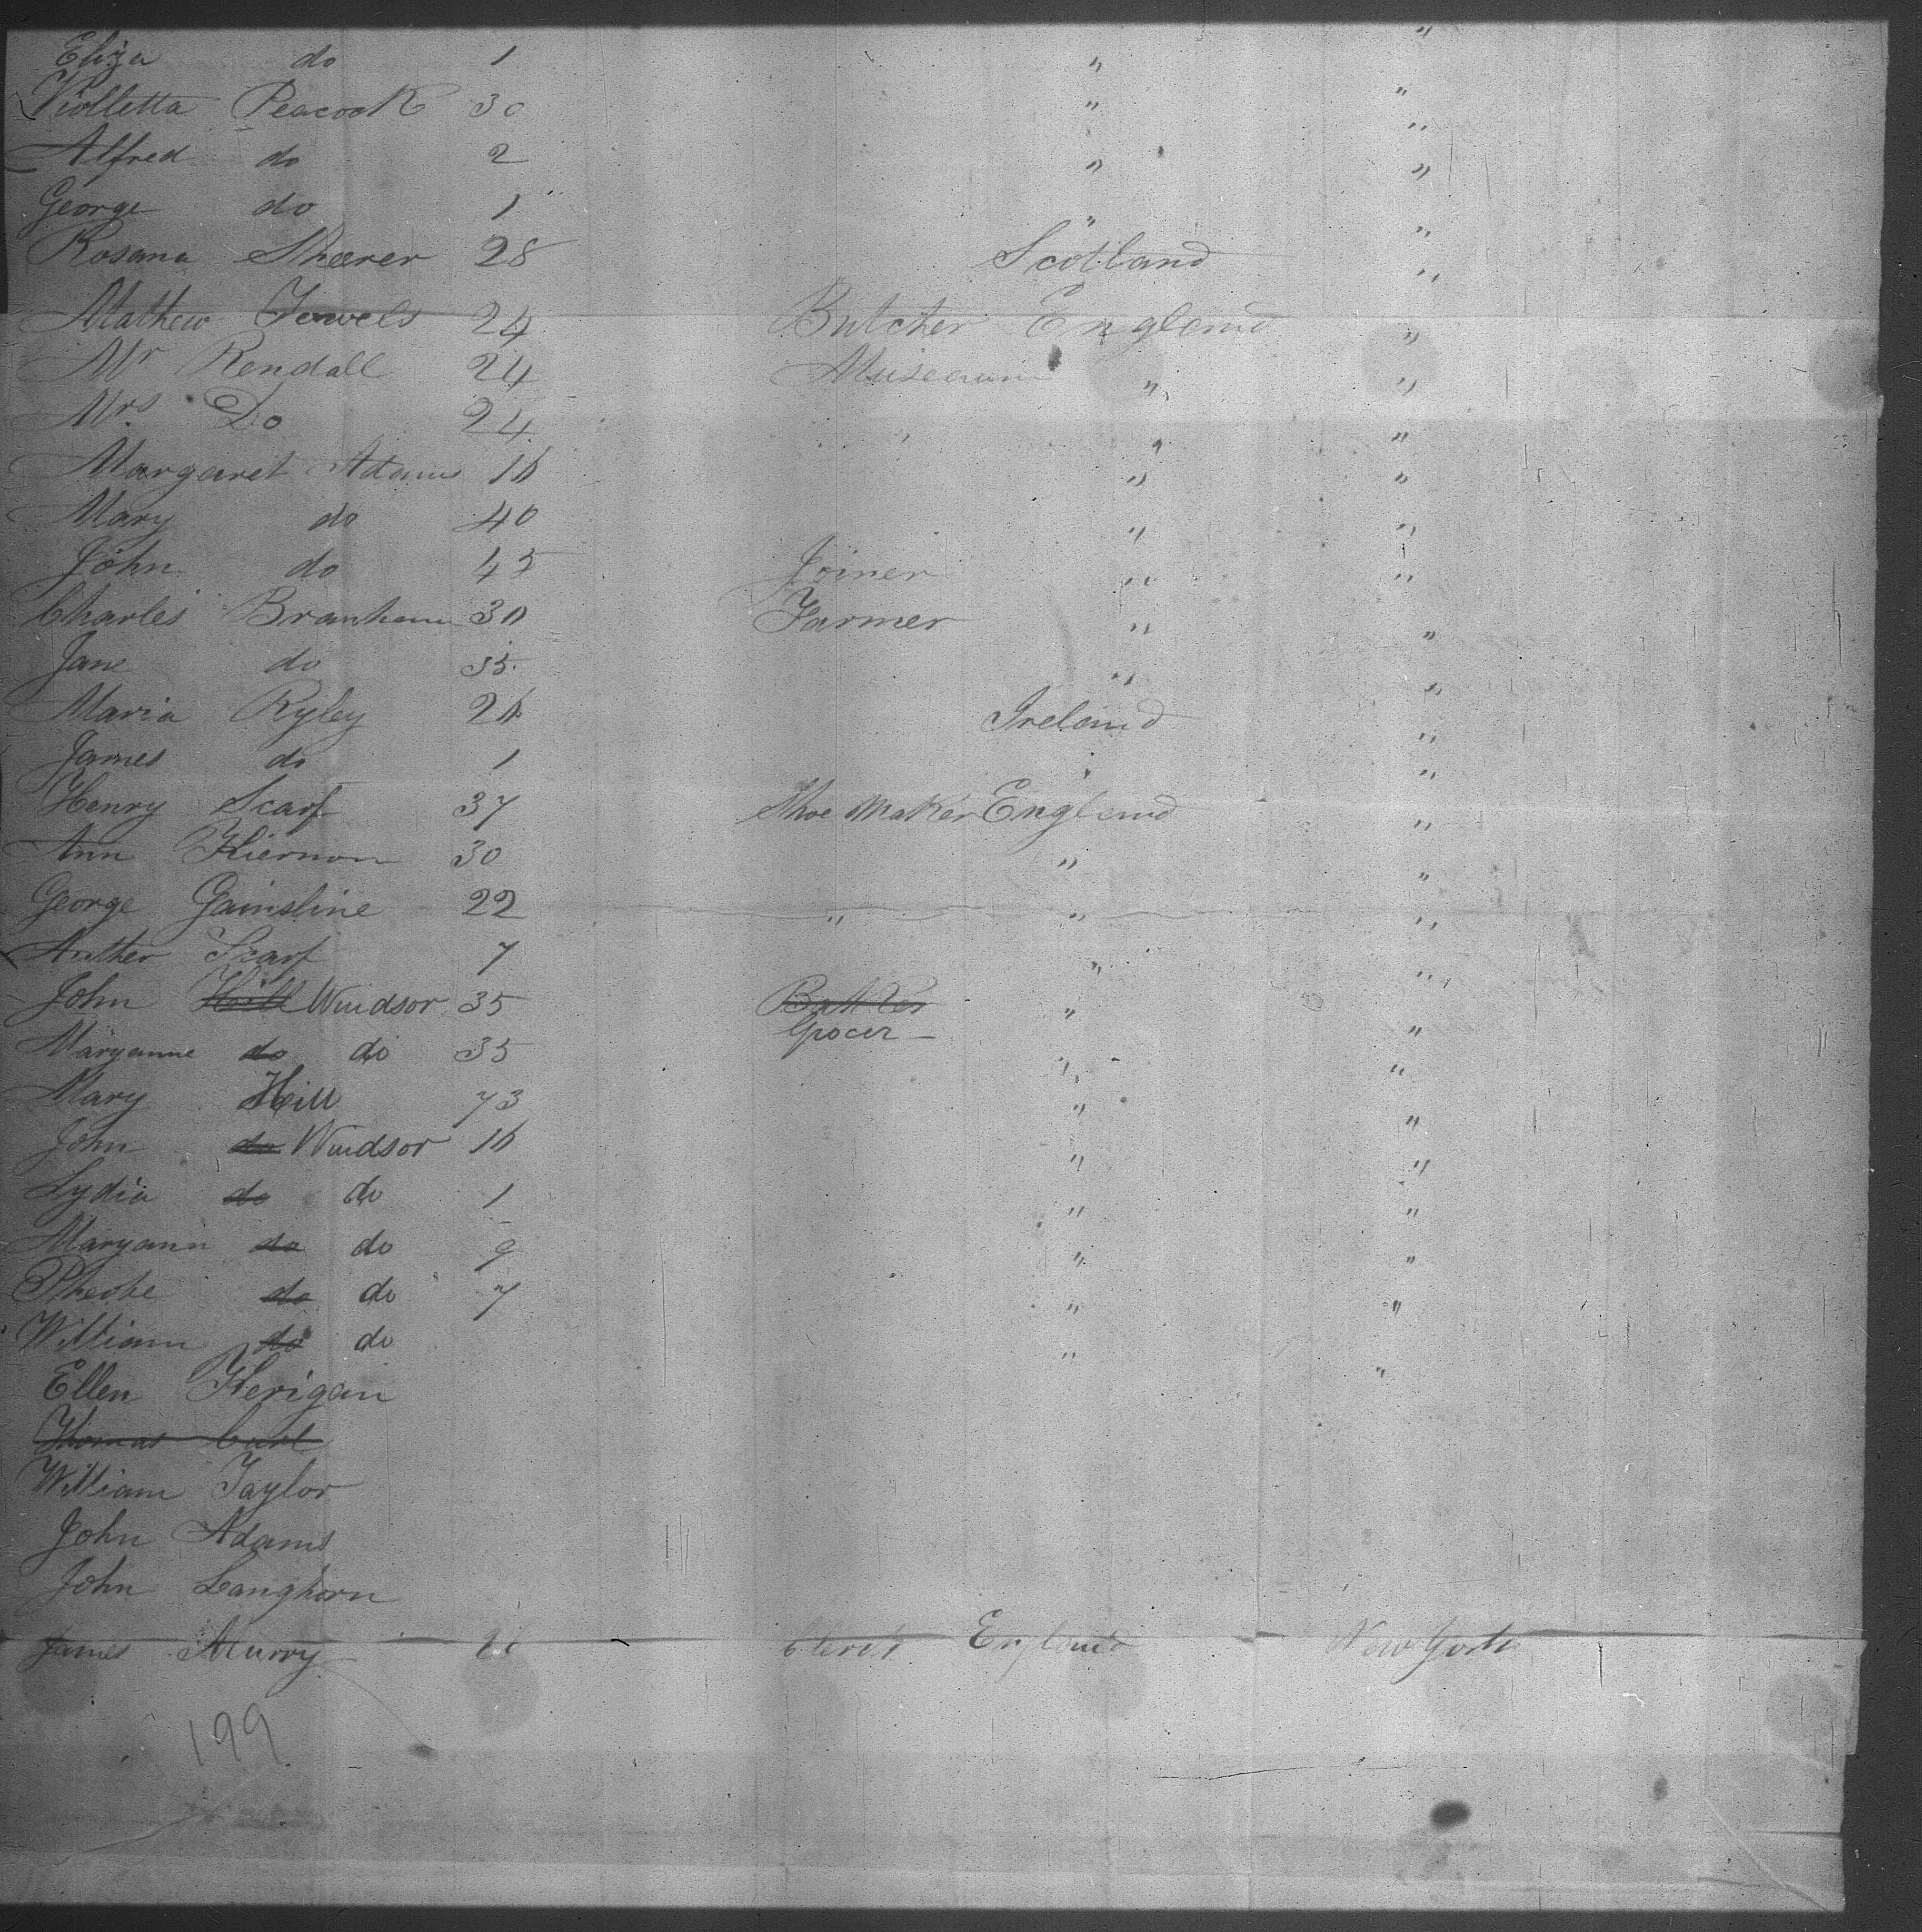 "
Eliza do 1 "
Violletta Peacock 30 " "
Alfred do 2 " "
George do 1 " "
Rosana Sheerer 28 Scotland "
Mathew Jewels 24 Butcher England "
Mr Rendall 24 Museaum " "
Mrs. Do 24 " " "
Margaret Adams 16 " "
Mary do 40 " "
John do 45 Joiner " "
Charles Branham 30 Farmer " "
Jane do 35 " "
Maria Ryley 26 Ireland "
James do 1 " "
Henry Scarf 37 Shoe Maker England "
Ann Kiernon 30 " "
George Gainsline 22 " " "
Anther Scarf 7 " "
John Hill Windsor 35 Batker "
Grocer - "
Maryanne do do 35 " "
Mary Hill 73 " "
John do Windsor 16 " "
Lydia do do 1 " "
Maryann do do 9 " "
Pheobe do do 7 " "
William do do " "
Ellen Kerigan
Thomas Carl
William Taylor
John Adams
John Langhorn
James Murry Clerk England New York
199